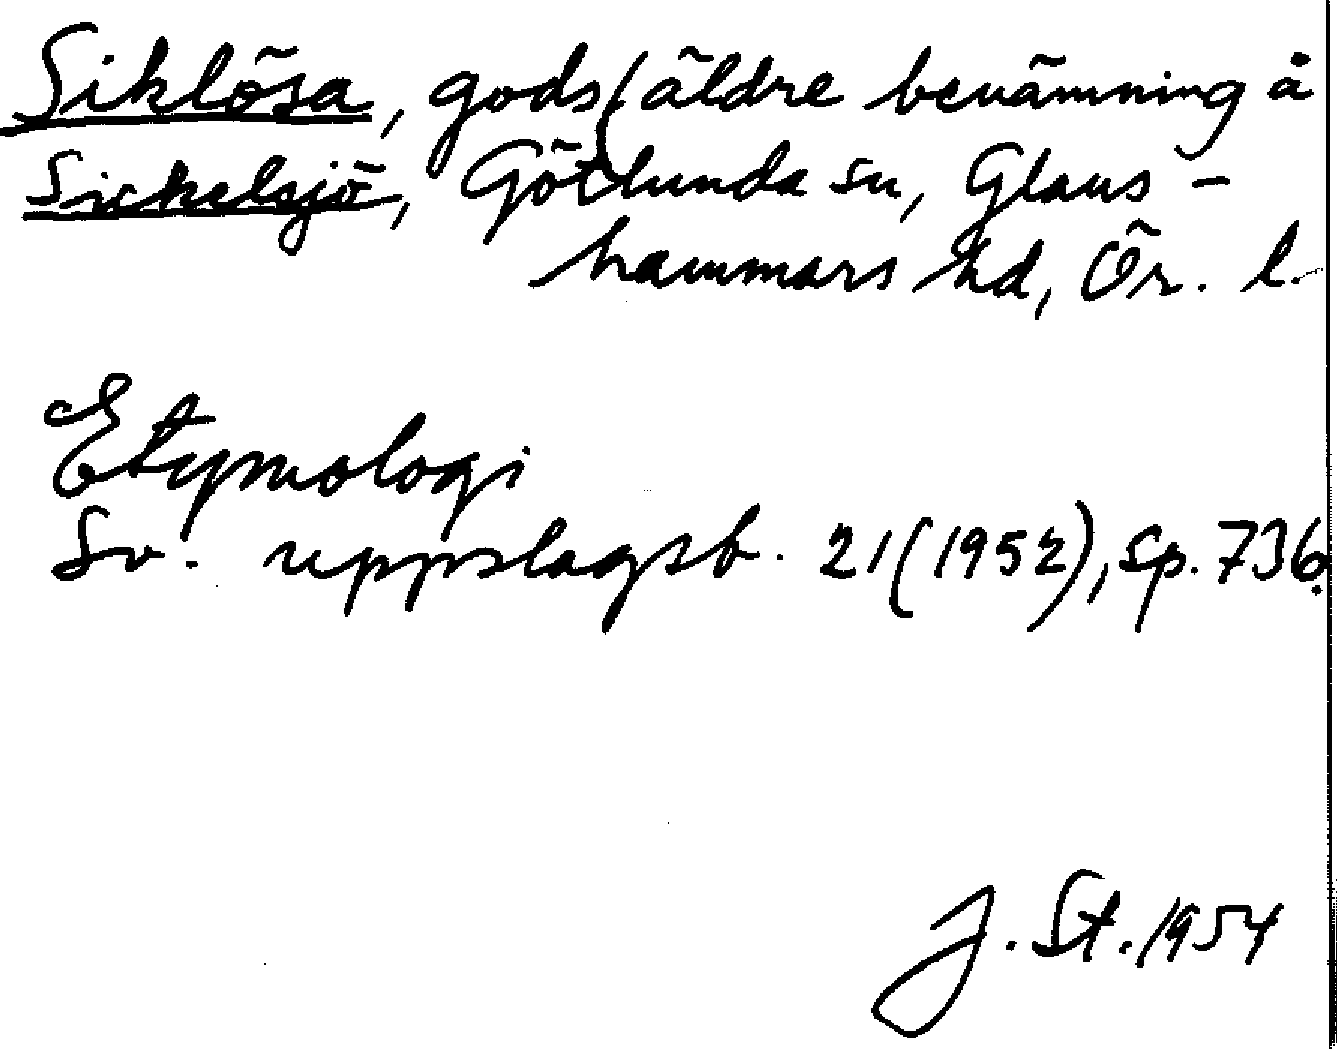 Siklösa, gods (äldre benämning å
Sickelsjö, Götlunda sn, Glans-
hammars hd, Ör. l.
Etymologi
Sv. uppslagsb. 21 (1952), sp. 736.
J. St. 1954